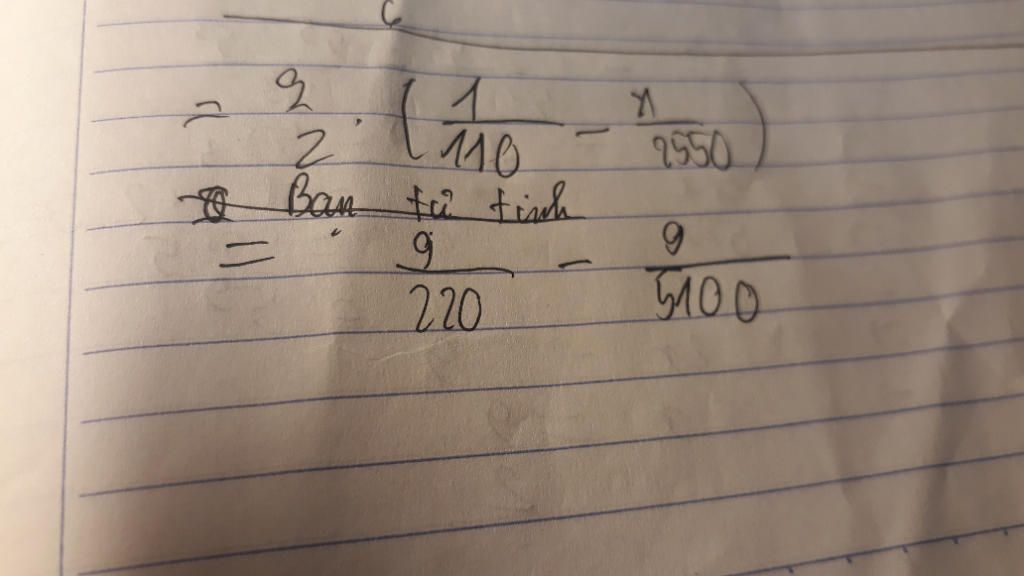 = 9/2 . (1/110 - 1/2550)
Bạn tự tính
= 9/220 - 9/5100